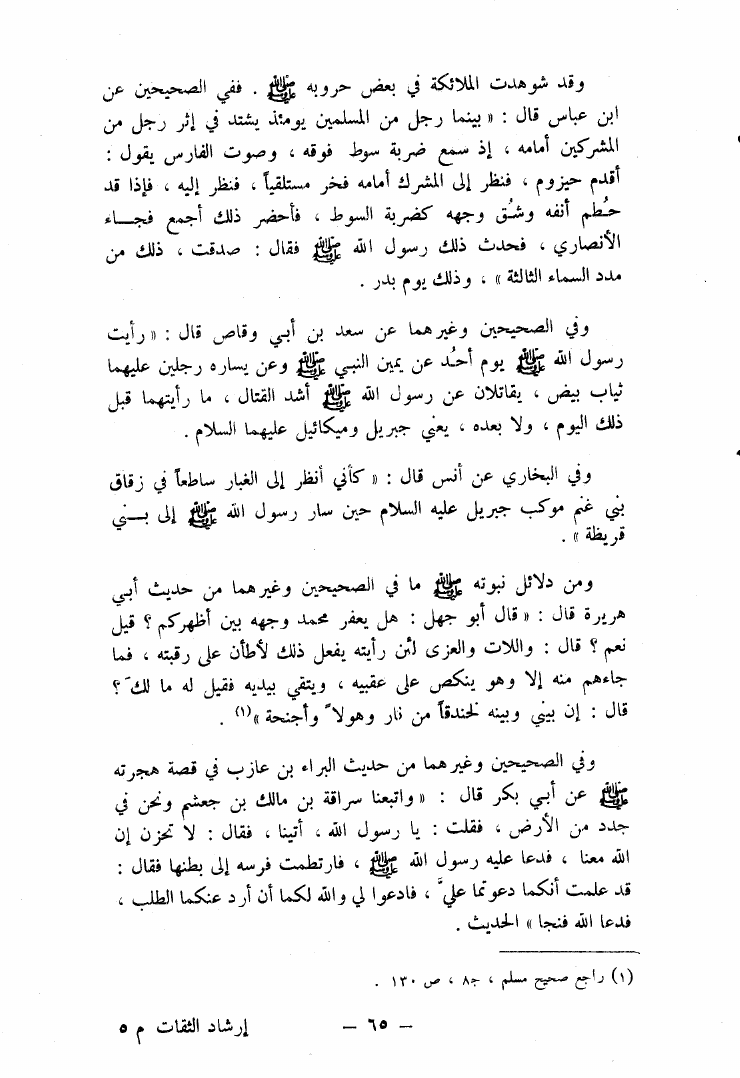 وقد شوهدت الملائكة في بعض حروبه ﷺ . ففي الصحيحين عن
ابن عباس قال : « بينما رجل من المسلمين يومئذ يشتد في إثر رجل من
المشركين أمامه ، إذ سمع ضربة سوط فوقه ، وصوت الفارس يقول :
أقدم حيزوم ، فنظر إلى المشرك أمامه فخر مستلقياً ، فنظر إليه ، فإذا قد
حُطم أنفه وشُق وجهه كضربة السوط ، فأحضر ذلك أجمع فجاء
الأنصاري ، فحدث ذلك رسول الله ﷺ فقال : صدقت ، ذلك من
مدد السماء الثالثة » ، وذلك يوم بدر .
وفي الصحيحين وغيرهما عن سعد بن أبي وقاص قال : « رأيت
رسول الله ﷺ يوم أحُد عن يمين النبي ﷺ وعن يساره رجلين عليهما
ثياب بيض ، يقاتلان عن رسول الله ﷺ أشد القتال ، ما رأيتهما قبل
ذلك اليوم ، ولا بعده ، يعني جبريل وميكائيل عليهما السلام .
وفي البخاري عن أنس قال : « كأني أنظر إلى الغبار ساطعاً في زقاق
بني غنم موكب جبريل عليه السلام حين سار رسول الله ﷺ إلى بني
قريظة » .
ومن دلائل نبوته ﷺ ما في الصحيحين وغيرهما من حديث أبي
هريرة قال : « قال أبو جهل : هل يعفر محمد وجهه بين أظهركم ؟ قيل
نعم ؟ قال : واللات والعزى لئن رأيته يفعل ذلك لأطأن على رقبته ، فما
جاءهم منه إلا وهو ينكص على عقبيه ، ويتقي بيديه فقيل له ما لكَ ؟
قال : إن بيني وبينه لخندقاً من نار وهولاً وأجنحة »(١) .
وفي الصحيحين وغيرهما من حديث البراء بن عازب في قصة هجرته
ﷺ عن أبي بكر قال : « واتبعنا سراقة بن مالك بن جعشم ونحن في
جدد من الأرض ، فقلت : يا رسول الله ، أتينا ، فقال : لا تحزن إن
الله معنا ، فدعا عليه رسول الله ﷺ ، فارتطمت فرسه إلى بطنها فقال :
قد علمت أنكما دعوتما عليَّ ، فادعوا لي والله لكما أن أرد عنكما الطلب ،
فدعا الله فنجا » الحديث .
(١) راجع صحيح مسلم ، ج٨ ، ص ١٣٠ .
– ٦٥ –
إرشاد الثقات م ٥